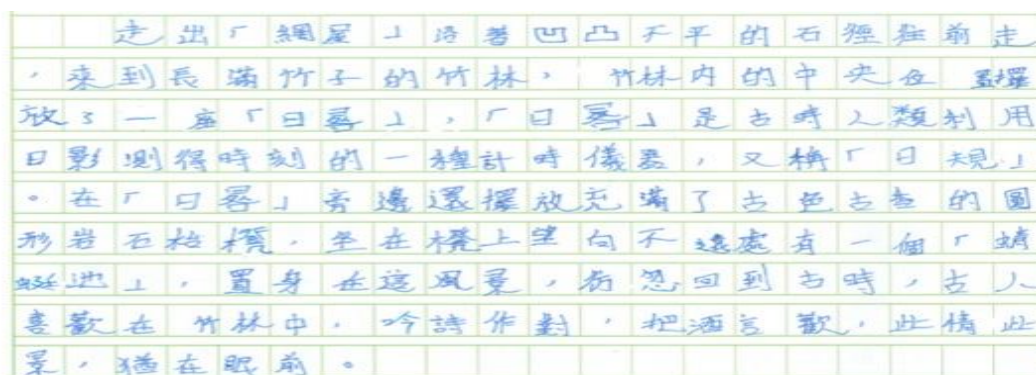 走出「網屋」沿著凹凸不平的石徑往前走
，來到長滿竹子的竹林，竹林內的中央位置擺
放了一座「日晷」，「日晷」是古時人類利用
日影測得時刻的一種計時儀器，又稱「日規」
。在「日晷」旁邊還擺放充滿了古色古香的圓
形岩石枱櫈，坐在櫈上望向不遠處有一個「蜻
蜓池」，置身在這風景，彷忽回到古時，古人
喜歡在竹林中，吟詩作對，把酒言歡，此情此
景，猶在眼前。